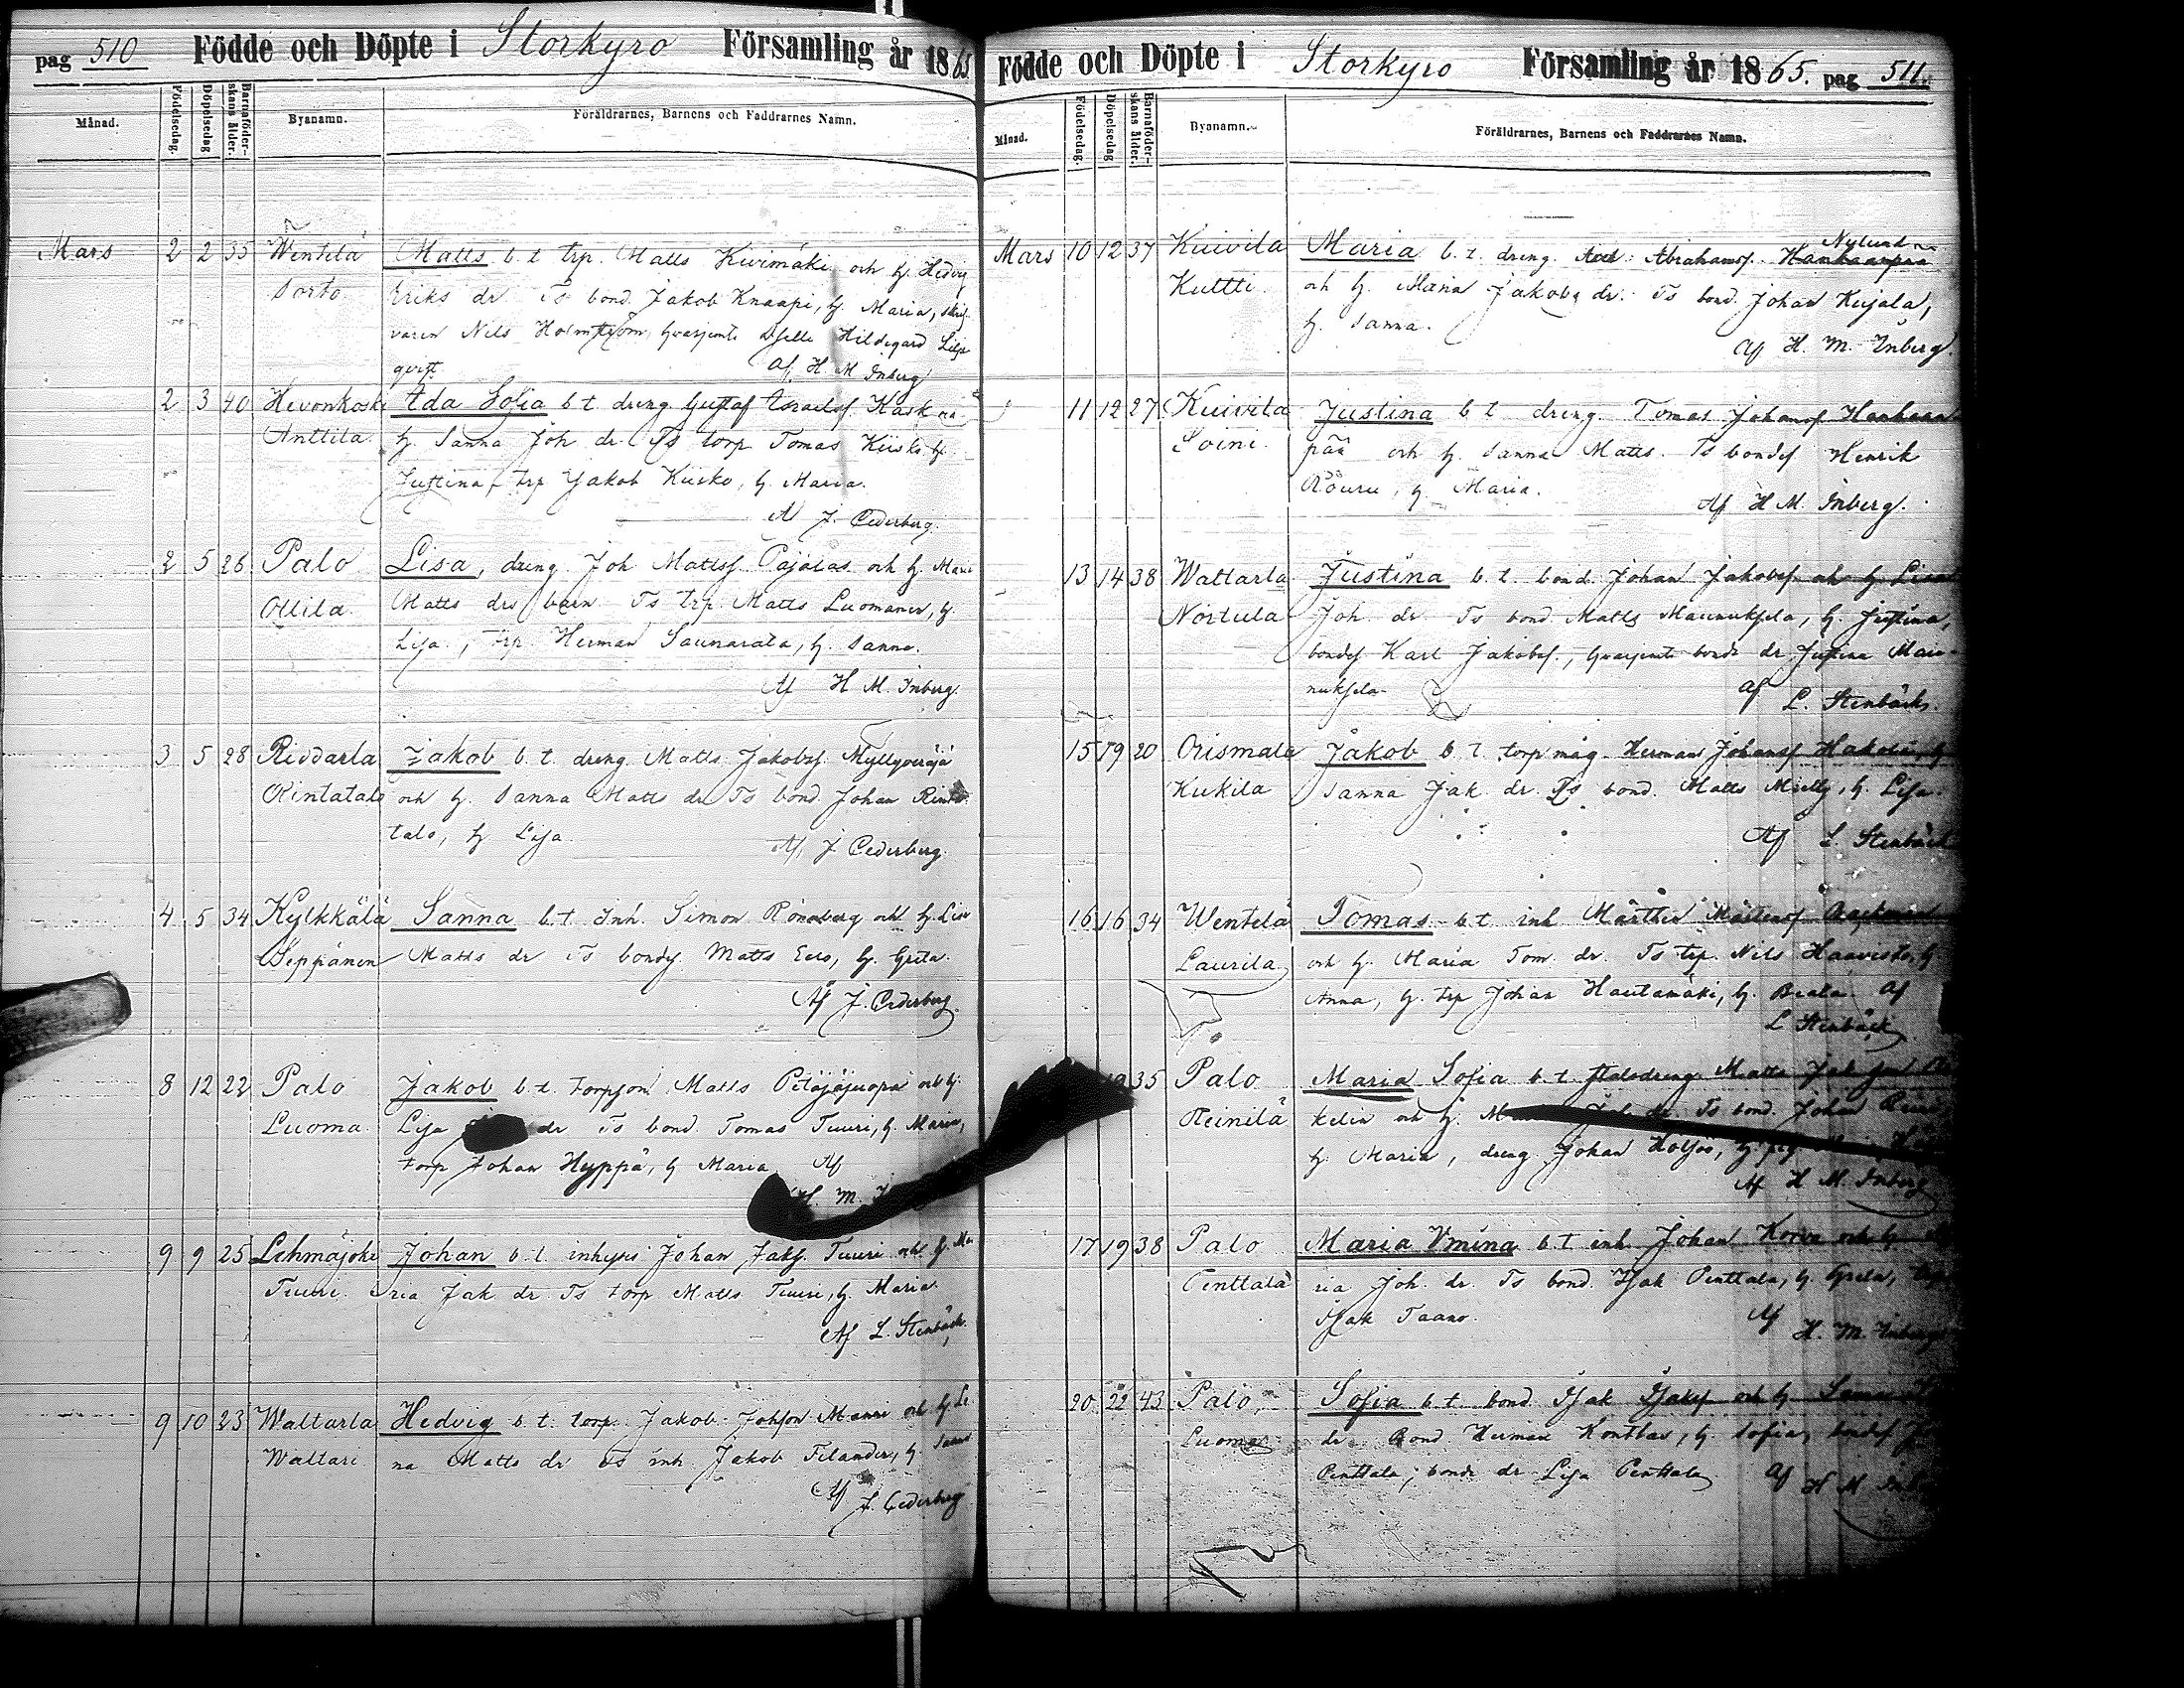 pag 510 Födde och Döpte i Storkyro Församling år 1865
Månad. Födelsedag. Döpelsedag Barnaföderskans ålder. Byanamn. Föräldrarnes, Barnens och Faddrarnes Namn.
Mars 2 2 35 Wentelä Matts b. t. trp. Matts Kivimäki och h. Hedvig
Sorto Eriks dr Ts bond. Jakob Knaapi, h. Maria, skrif-
varen Nils Holmström, hvarjemte Dselle Hildegard Lilje
qvist. Af H M Inberg
2 3 40 Hevonkoski Ada Sofia b t dreng Gustaf Israelsf Kask
Anttila h. Sanna Joh dr Ts torp Tomas Kiisko h
Justina, trp Jakob Kiisko, h. Maria.
Af J. Cederberg.
2 5 26 Palo Lisa, dreng Joh Mattsf Pajolas och h Mari
Ollila. Matts drs barn Ts trp. Matts Luomanen, h.
Lisa, trp. Herman Saunarata, h. Sanna.
Af H M. Inberg.
3 5 28 Riddarla Jakob b. t. dreng Matts Jakobsf. Myllyviäjä
Rintatalo och h. Sanna Matts dr Ts bond. Johan Rinta
talo, h Lisa. Af J Cederberg.
4 5 34 Kylkkälä Sanna b. t. Inh. Simon Rönnberg och h. Lisa
Seppänen Matts dr Ts bondf. Matts Eero, h. Greta.
Af J. Cederberg.
8 12 22 Palo Jakob b. t. torpson Matts Pitäjäjuopa och h.
Luoma. Lisa dr Ts bond. Tomas Tuuri, h. Maria,
torp Johan Hyppä, h Maria Af
H. M.
9 9 25 Lehmäjoki Johan b. t. inhyses Johan Jaksf. Tuuri och h. Ma
Tuuri. ria Jak dr Ts torp Matts Tuuri, h. Maria.
Af L. Stenbäck.
9 10 23 Waltarla Hedvig b. t. torp. Jakob Johson Manni och h Li
Waltari na Matts dr Ts inh. Jakob Filander, h. Sanna
Af J. Cederberg
Födde och Döpte i Storkyro Församling år 1865. pag 511.
Månad. Födelsedag. Döpelsedag Barnaföderskans ålder. Byanamn. Föräldrarnes, Barnens och Faddrarnes Namn.
Nylund
Mars 10 12 37 Kuivila Maria b. t. dreng Abrahamsf. Hanhaanpää
Kuttti. och h. Maria Jakobs dr. Ts bond. Johan Kujala,
h. Sanna. Af H. M. Inberg.
11 12 27 Kuivila Justina b t dreng. Tomas Johansf Hanhaan
Soini. pää och h. Sanna Matts. Ts bondsf Henrik
Röuru, h. Maria. Af H M. Inberg.
13 14 38 Waltarla Justina b. t. bond. Johan Jakobsf och h Lisa
Nortula Joh. dr Ts bond. Matts Maunuksela, h. Justina,
bondsf Karl Jakobsf., hvarjemte bonde dr Justina Mau-
nuksela Af L. Stenbäck.
15 19 20 Orismala Jakob b. t. torpmåg Herman Johansf Hakola, h
Kukila Sanna Jak. dr. Ts bond. Matts Mielty, h. Lisa.
Af L. Stenbäck
16 16 34 Wentelä Tomas b. t. inh Mårthen Mårtensf
Laurila och h. Maria Tom. dr. Ts trp. Nils Haavisto, h
Anna, h. trp Johan Hautamäki, h. Beata. Af
L Stenbäck
19 35 Palo Maria Sofia b. t. Matts Jak
Heinilä kelin och h. dr. Ts bond. Johan
h. Maria, dreng Johan Koljo, h.
Af H M. Inberg
17 19 38 Palo Maria Vmina b. t inh. Johan Korva och h Ma
Penttala ria Joh. dr. Ts bond. Isak Penttala, h. Greta,
Isak Taano. Af
H. M. Inberg
20 22 43 Palo, Sofia b. t. bond Isak Isaksf och h Sanna
Luoma dr. Bond Herman Konttas, h. Sofia, bondsf
Penttala, bonde dr Lisa Penttala Af H M Inb